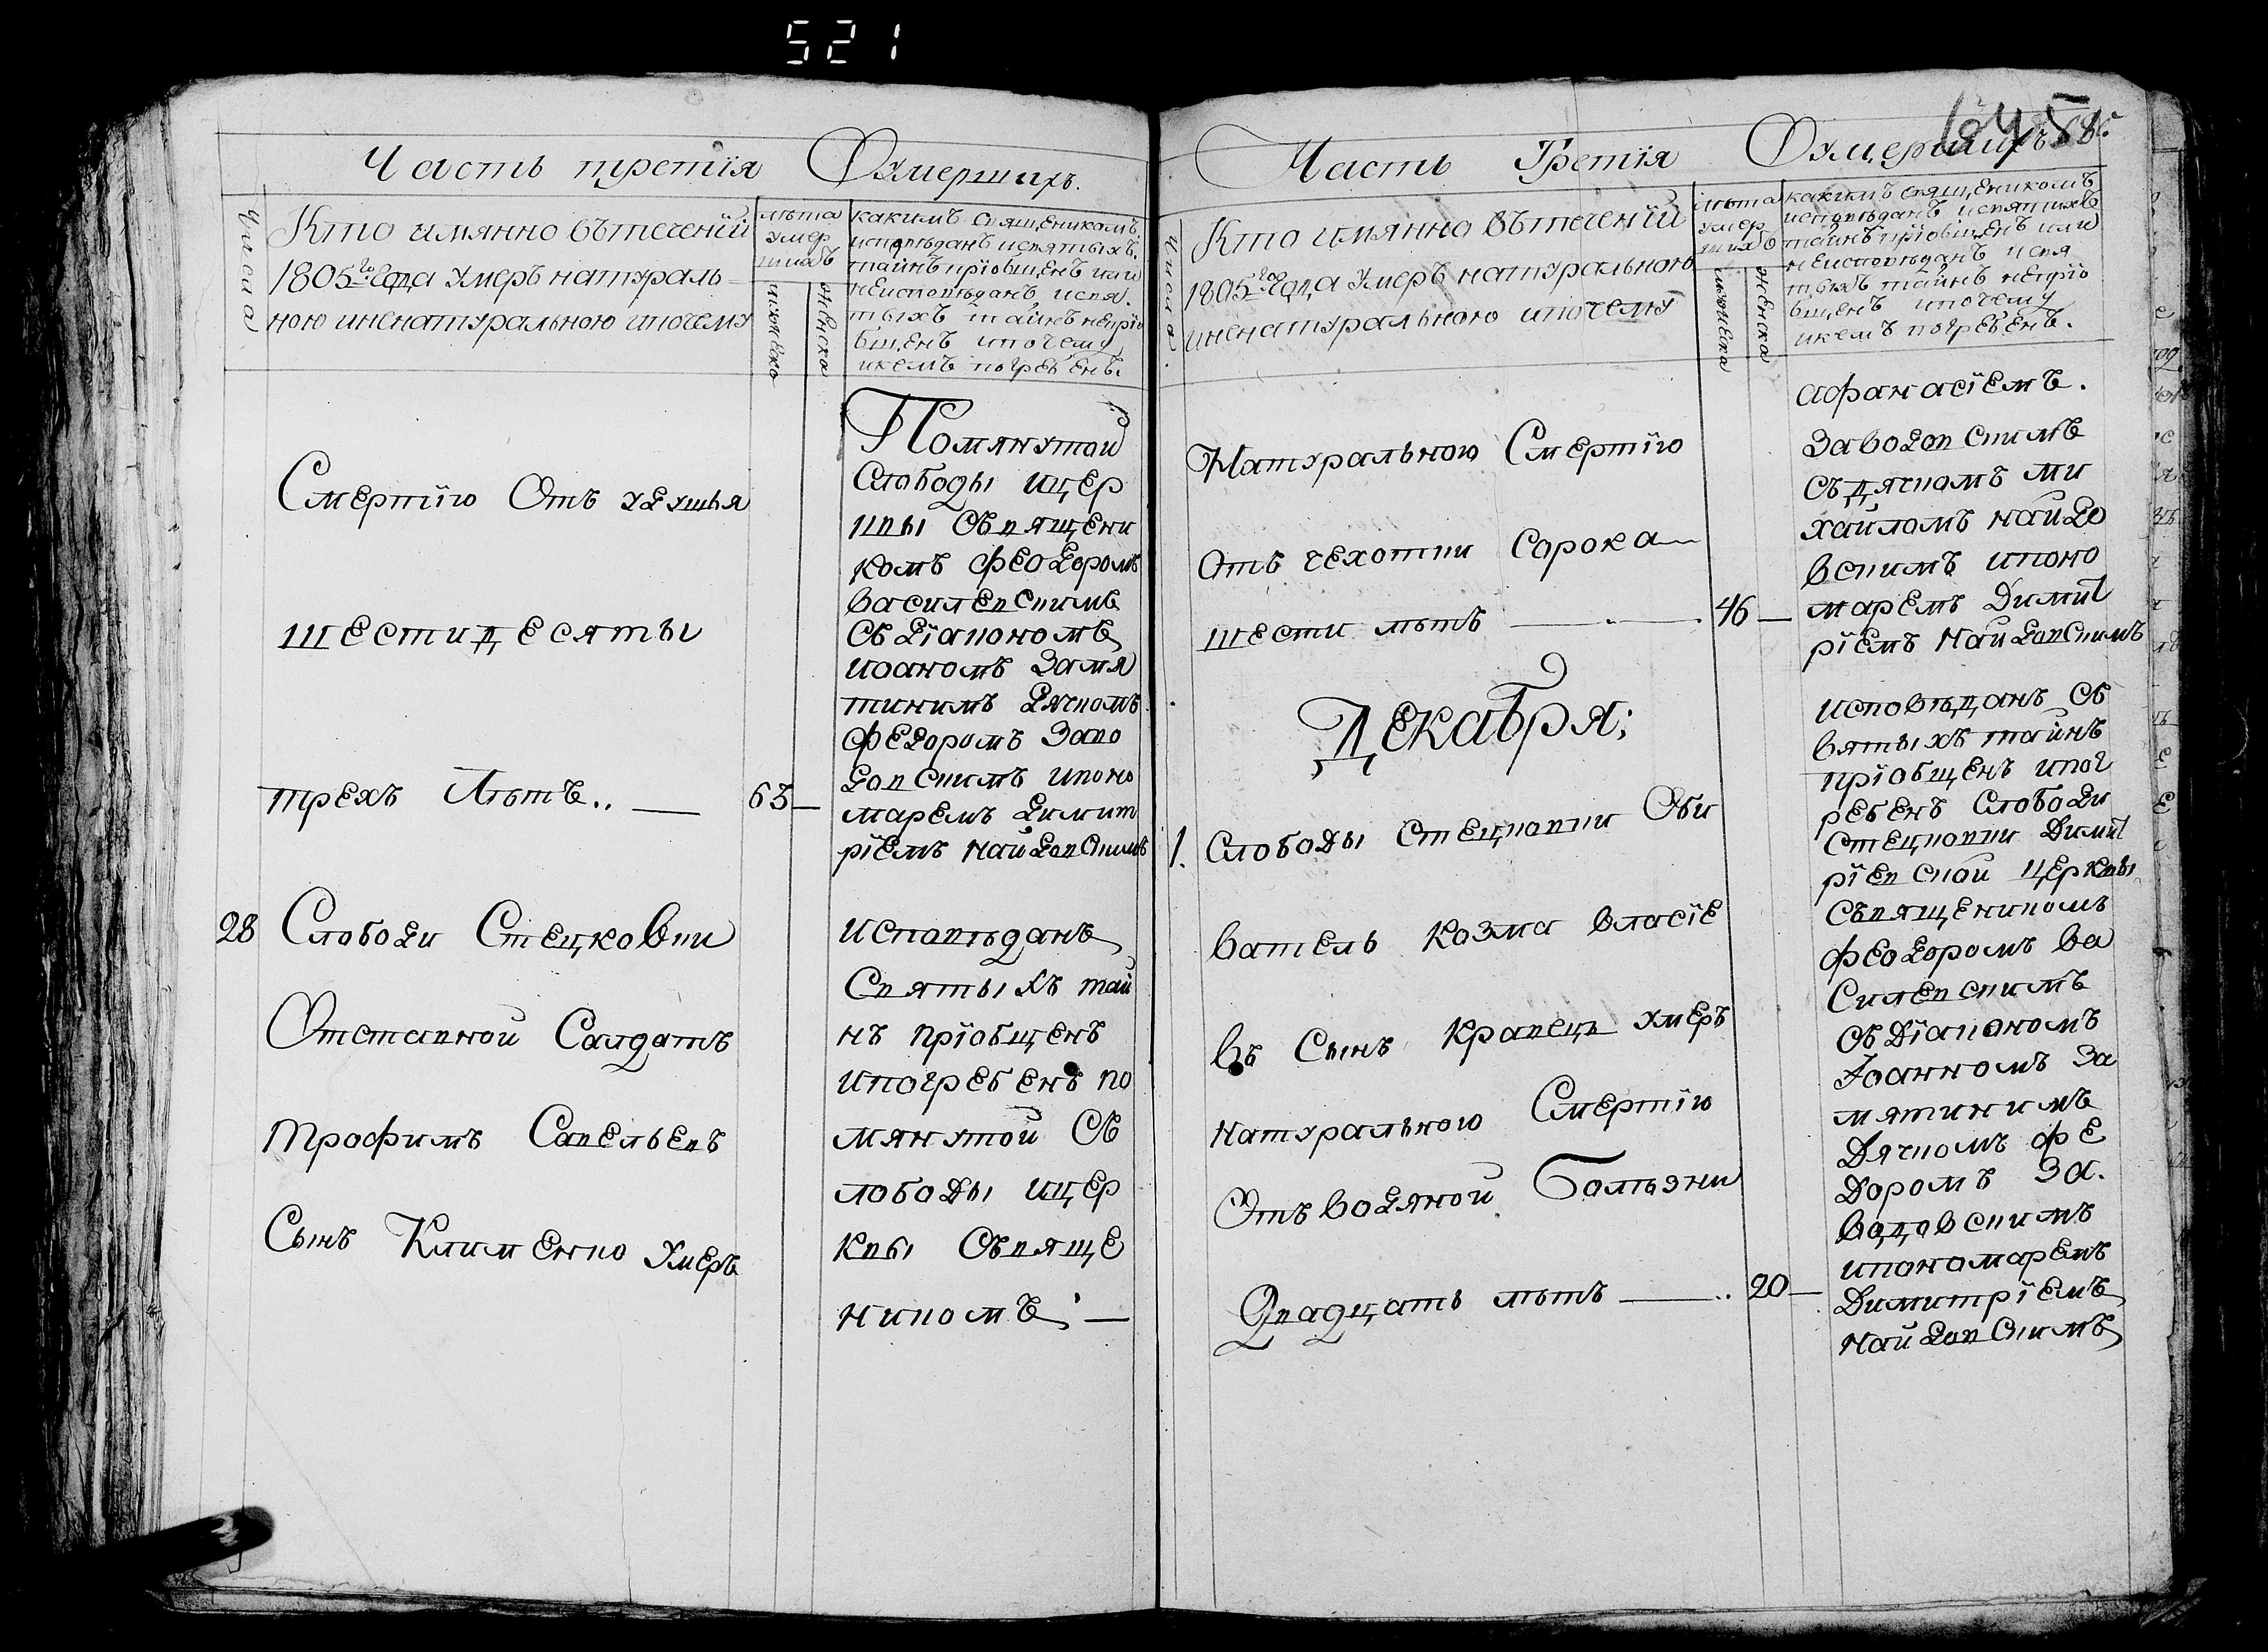 521
Часть третїя Оумершихъ.
Числа
Кто имянно втъеченїй
1805го года умеръ натураль
ною иненатуральною ипочему
лѣта
умер
шихъ
мужеска
женска
какимъ священикомъ
исповѣданъ исвятыхъ
таинъ прїобщенъ или
неисповѣданъ исвя
тыхъ таинъ непрїо
бщенъ ипочему
икемъ погребенъ.
Смертїю Отъ удушья
шестидесяты
трехъ Лѣтъ.. — 63 —
Помянутой
Слободы ицер
квы Священи
комъ Феодоромъ
василевскимъ
Съ дїакономъ
иоаномъ Замя
тинимъ дячкомъ
Федоромъ Заво
довскимъ ипоно
маремъ димит
рїемъ найдовскимъ
28 Слободи Стецковки
Отставной Салдатъ
трофимъ Савельевъ
Сынъ Клименко умеръ
исповѣданъ
Святыхъ тай
нъ прїобщенъ
ипогребенъ по
мянутой Сь
лободы ицер
квы Свяще
никомъ —
Часть Третїя Оумершихъ
645
Числа
Кто имянно вътеченїй
1805го года умеръ натуральною
иненатуральною ипочему
лѣта
умер
шихъ
мужеска
женска
какимъ священикомъ
исповѣданъ исвятихъ
таинъ прїобщенъ или
неисповѣданъ исвя
тыхъ таинъ непрїо
бщенъ ипочему
икемъ погребенъ.
Натуральною Смертїю
Отъ чехотки Сорока—
шести лѣтъ — 46 —
афанасїемъ.
Заводовскимъ
съ дячкомъ ми
хайломъ найдо
вскимъ ипоно
маремъ Димит
рїемъ Найдовскимъ
Декабря;
1. Слободы стецковки Оби
ватель козма власїе
въ Сынъ кравецъ умеръ
натуральною Смертїю
Отъ водяной Болѣзни
Двадцать лѣтъ —.. 20 —
исповѣданъ Съ
вятыхъ таинъ
прїобщенъ ипог
ребенъ слободи
стецковки Димит
рїевской церквы
Священикомъ
феодоромъ ва
Силевскимъ
Съ Дїакономъ
Іоанномъ За
мятинимъ
Дячкомъ фе
Доромъ За.
водовскимъ
ипономаремъ
Димитрїемъ
найдовскимъ